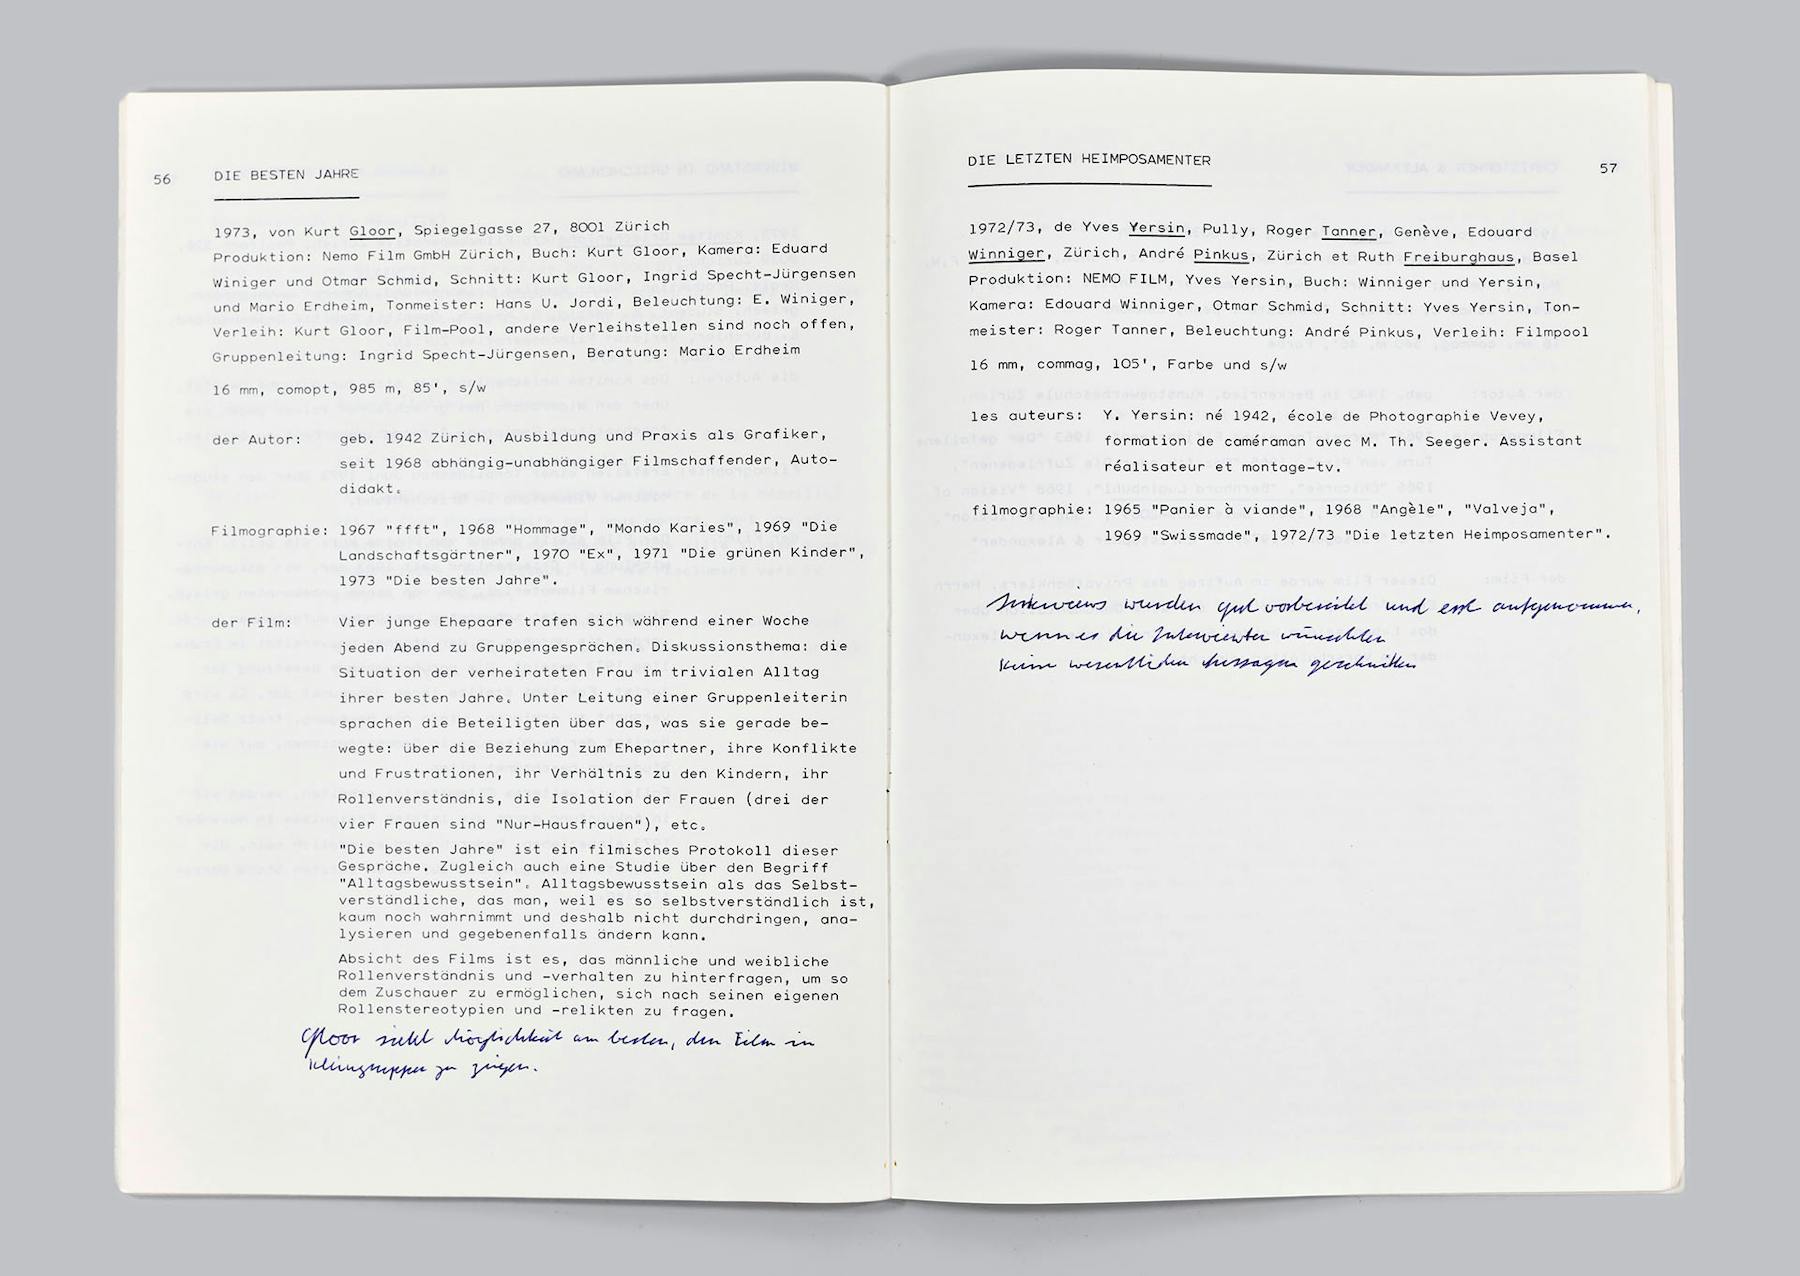 56
DIE BESTEN JAHRE
1973, von Kurt Gloor, Spiegelgasse 27, 8001 Zürich
Produktion: Nemo Film GmbH Zürich, Buch: Kurt Gloor, Kamera: Eduard
Winiger und Otmar Schmid, Schnitt: Kurt Gloor, Ingrid Specht-Jürgensen
und Mario Erdheim, Tonmeister: Hans U. Jordi, Beleuchtung: E. Winiger,
Verleih: Kurt Gloor, Film-Pool, andere Verleihstellen sind noch offen,
Gruppenleitung: Ingrid Specht-Jürgensen, Beratung: Mario Erdheim
16 mm, comopt, 985 m, 85', s/w
der Autor: geb. 1942 Zürich, Ausbildung und Praxis als Grafiker,
seit 1968 abhängig-unabhängiger Filmschaffender, Auto-
didakt.
Filmographie: 1967 "ffft", 1968 "Hommage", "Mondo Karies", 1969 "Die
Landschaftsgärtner", 1970 "Ex", 1971 "Die grünen Kinder",
1973 "Die besten Jahre".
der Film: Vier junge Ehepaare trafen sich während einer Woche
jeden Abend zu Gruppengesprächen. Diskussionsthema: die
Situation der verheirateten Frau im trivialen Alltag
ihrer besten Jahre. Unter Leitung einer Gruppenleiterin
sprachen die Beteiligten über das, was sie gerade be-
wegte: über die Beziehung zum Ehepartner, ihre Konflikte
und Frustrationen, ihr Verhältnis zu den Kindern, ihr
Rollenverständnis, die Isolation der Frauen (drei der
vier Frauen sind "Nur-Hausfrauen"), etc.
"Die besten Jahre" ist ein filmisches Protokoll dieser
Gespräche. Zugleich auch eine Studie über den Begriff
"Alltagsbewusstsein". Alltagsbewusstsein als das Selbst-
verständliche, das man, weil es so selbstverständlich ist,
kaum noch wahrnimmt und deshalb nicht durchdringen, ana-
lysieren und gegebenenfalls ändern kann.
Absicht des Films ist es, das männliche und weibliche
Rollenverständnis und -verhalten zu hinterfragen, um so
dem Zuschauer zu ermöglichen, sich nach seinen eigenen
Rollenstereotypien und -relikten zu fragen.
Gloor sieht Möglichkeit am besten, den Film in
Kleingruppen zu zeigen.
DIE LETZTEN HEIMPOSAMENTER
57
1972/73, de Yves Yersin, Pully, Roger Tanner, Genève, Edouard
Winniger, Zürich, André Pinkus, Zürich et Ruth Freiburghaus, Basel
Produktion: NEMO FILM, Yves Yersin, Buch: Winniger und Yersin,
Kamera: Edouard Winniger, Otmar Schmid, Schnitt: Yves Yersin, Ton-
meister: Roger Tanner, Beleuchtung: André Pinkus, Verleih: Filmpool
16 mm, commag, 105', Farbe und s/w
les auteurs: Y. Yersin: né 1942, école de Photographie Vevey,
formation de caméraman avec M. Th. Seeger. Assistant
réalisateur et montage-tv.
filmographie: 1965 "Panier à viande", 1968 "Angèle", "Valveja",
1969 "Swissmade", 1972/73 "Die letzten Heimposamenter".
Interviews wurden gut vorbereitet und erst aufgenommen,
wenn es die Interviewten wünschten
Keine wesentlichen Aussagen geschnitten